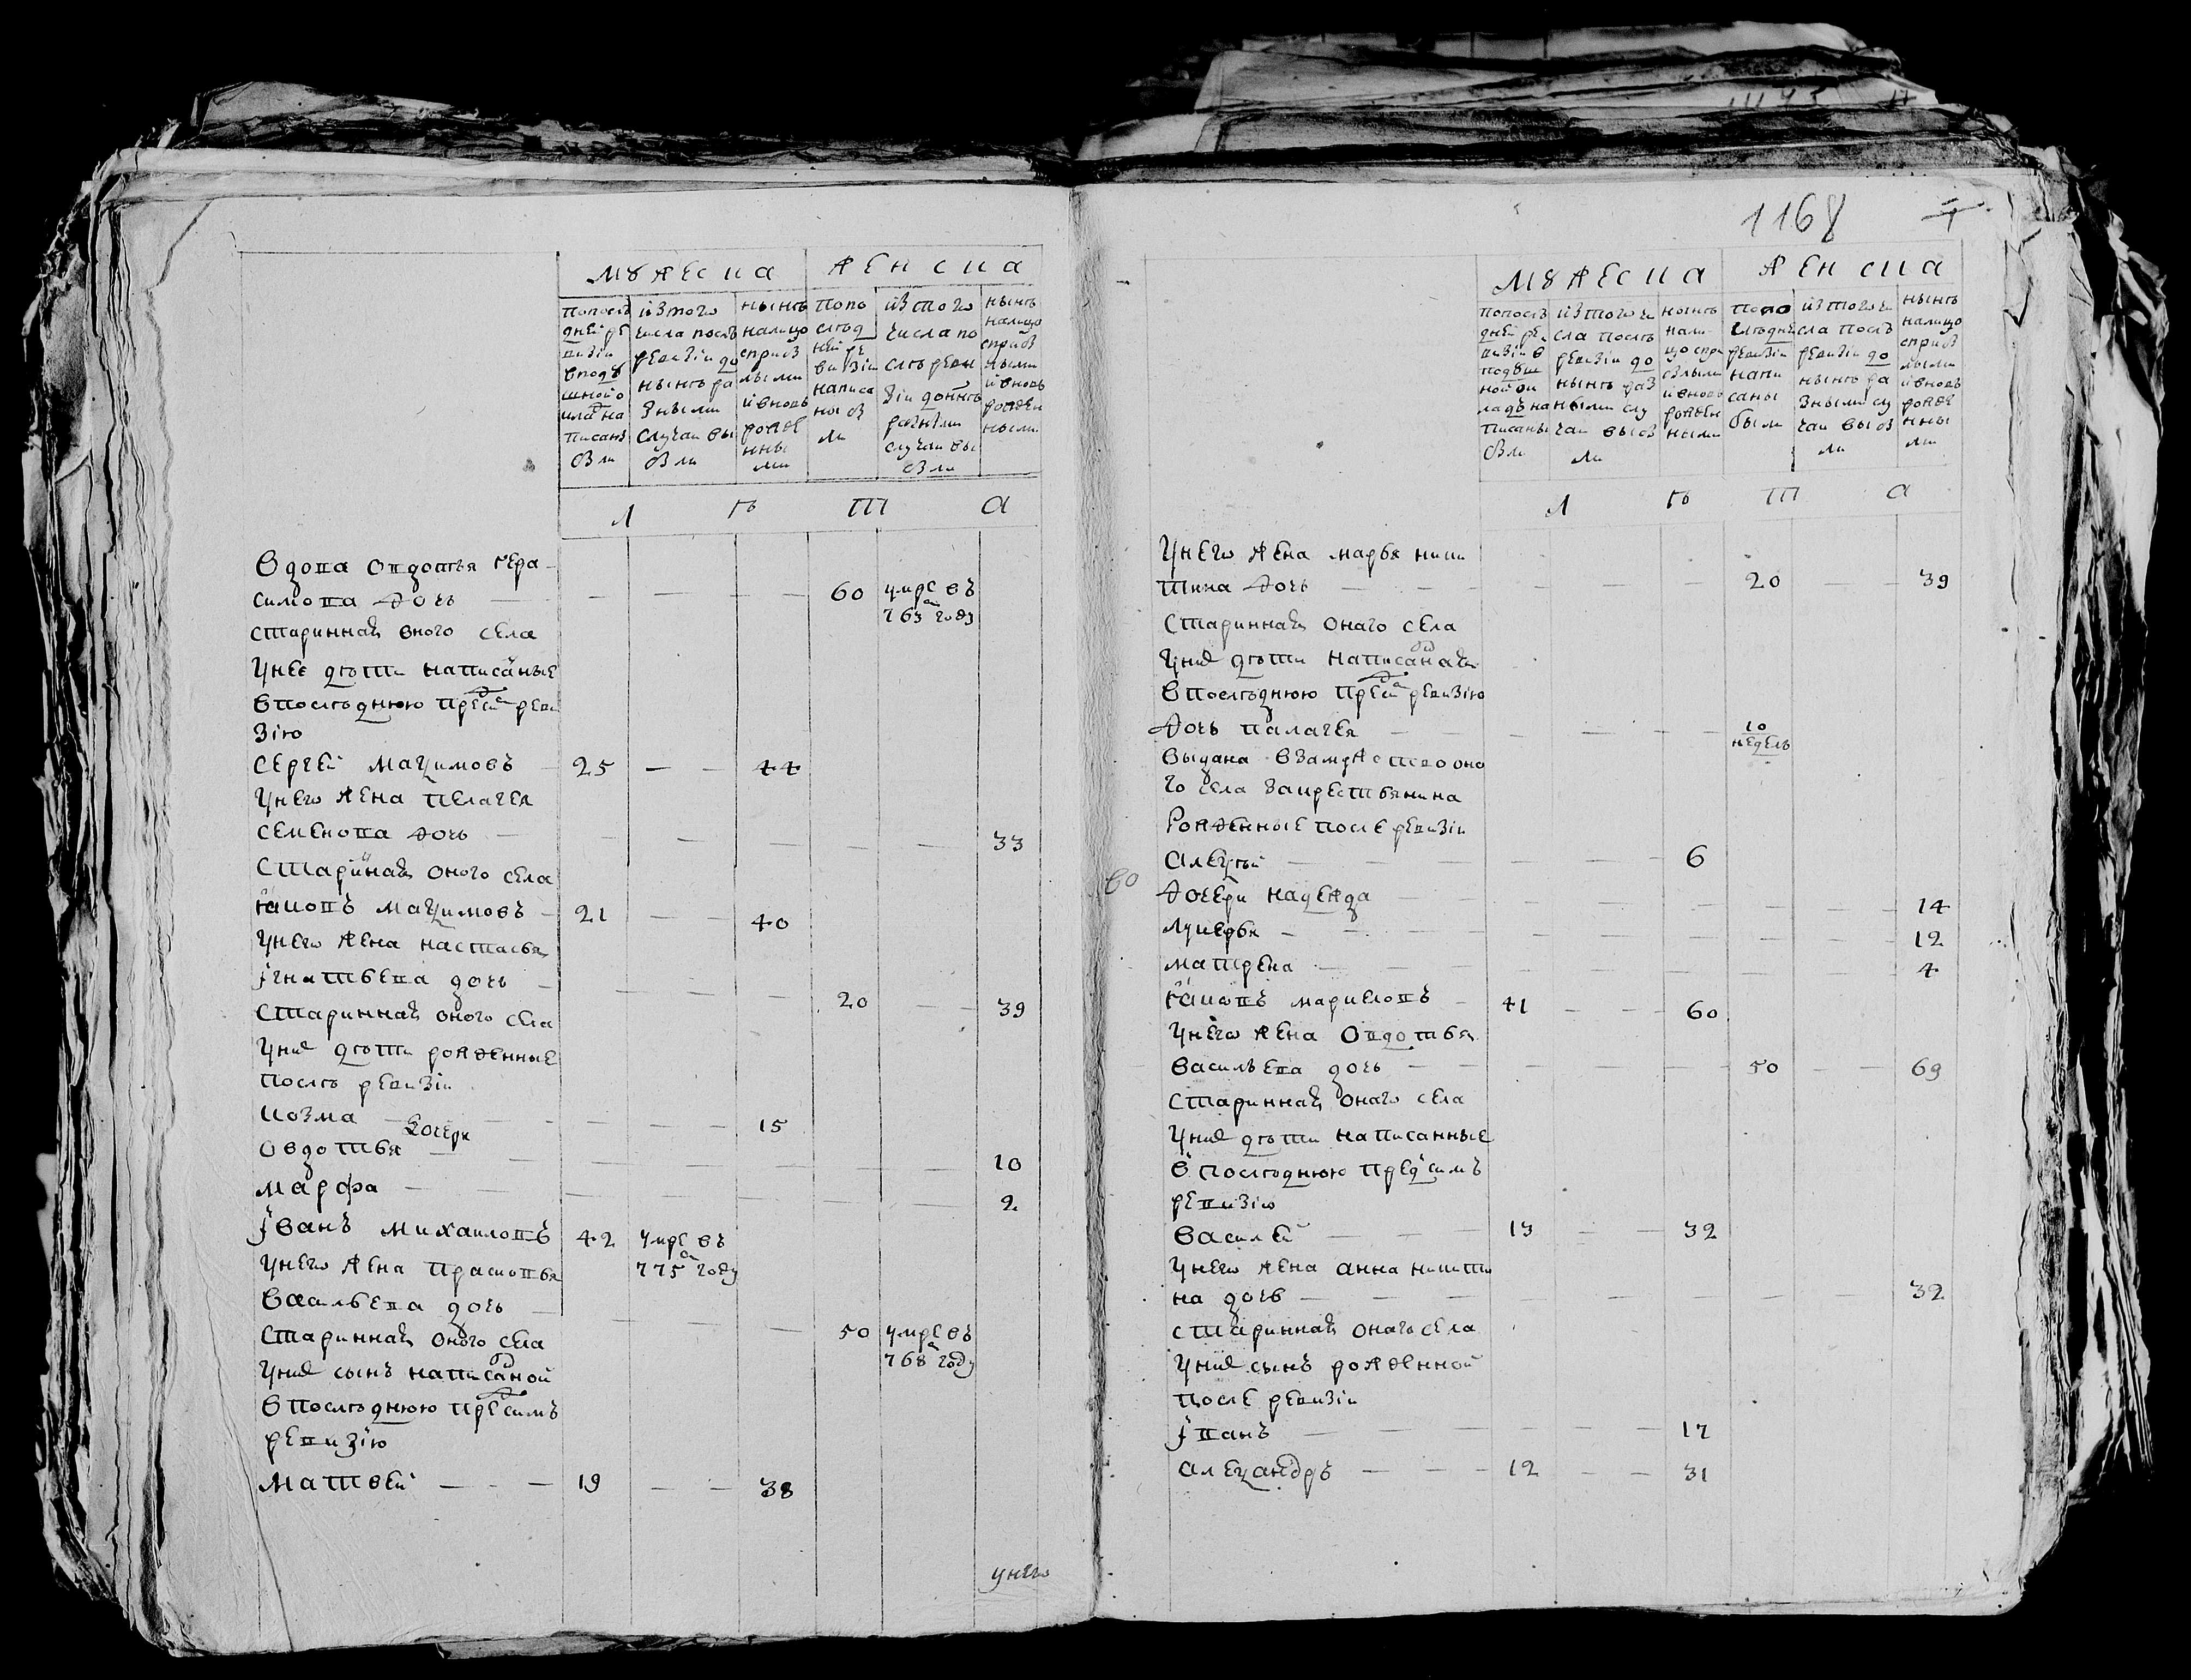 мꙋжеска
женска
попослѣ
дней ре
визіи
вподꙋ
шной о
кладъ на
писанѣ
были
изтого
числа послѣ
ревизіи до
нынѣ ра
зными
случаи вы
были
нынѣ
налицо
сприб
лыми
ивновь
рожде
нны
ми
попо
слѣд
ней ре
визіи
написа
ны бы
ли
изтого
числа по
слѣ реви
зіи доннѣ
разными
случаи вы
были
нынѣ
налицо
сприб
лыми
ивновь
рожден
ными
л ѣ т а
вдова овдотья гера
симова дочь — 60 умре въ
763м году
стариннаѧ оного села
унее дѣти написаные
впослѣднюю предсим реви
зію
сергей маѯимовъ 25 — 44
унего жена пелагея
семенова дочь — 33
стариннаѧ оного села
яковъ маѯимовъ 21 — 40
унего жена настасья
игнатьева дочь — 20 — 39
стариннаѧ оного села
уних дѣти рожденные
послѣ ревизіи
козма — 15
дочери
овдотья — 10
марфа — 2
іванъ михаиловъ 42 умре въ
775м году
унего жена прасковья
васильева дочь — 50 умре въ
768м году
стариннаѧ оного села
уних сынъ написаной
впослѣднюю предсимъ
ревизію
матвей — 19 — 38
унего
1168
мꙋжеска
женска
попослѣ
дней ре
визіи в
подꙋш
ной ок
ладъ на
писаны
были
изтого чи
сла послѣ
ревизіи до
нынѣ раз
ными слу
чаи выбы
ли
нынѣ
нали
цо спри
былыми
ивновь
рожден
ными
попо
слѣдне
ревизіи
напи
саны
были
изтого чи
сла послѣ
ревизіи до
нынѣ ра
зными слу
чаи выбы
ли
нынѣ
налицо
сприб
лыми
ивновь
рожде
нны
ми
л ѣ т а
унего жена марья ники
тина дочь — 20 — 39
стариннаѧ онаго села
уних дѣти написанаѧ
впослѣднюю предсим ревизію
дочь палагея — 10
недель
выдана взамужество оно
го села закрестьянина
рожденные после ревизіи
алеѯѣй — 6
дочери надежда — 14
лукерья — 12
матрена — 4
яковъ мариковъ 41 — 60
унего жена овдотья
васильева дочь — 50 — 69
стариннаѧ онаго села
уних дѣти написанные
в послѣднюю предсимъ
ревизію
василей — 13 — 32
унего жена анна никити
на дочь — 32
стариннаѧ онаго села
уних сынъ рожденной
после ревизіи
іванъ — 17
алеѯандръ — 12 — 31